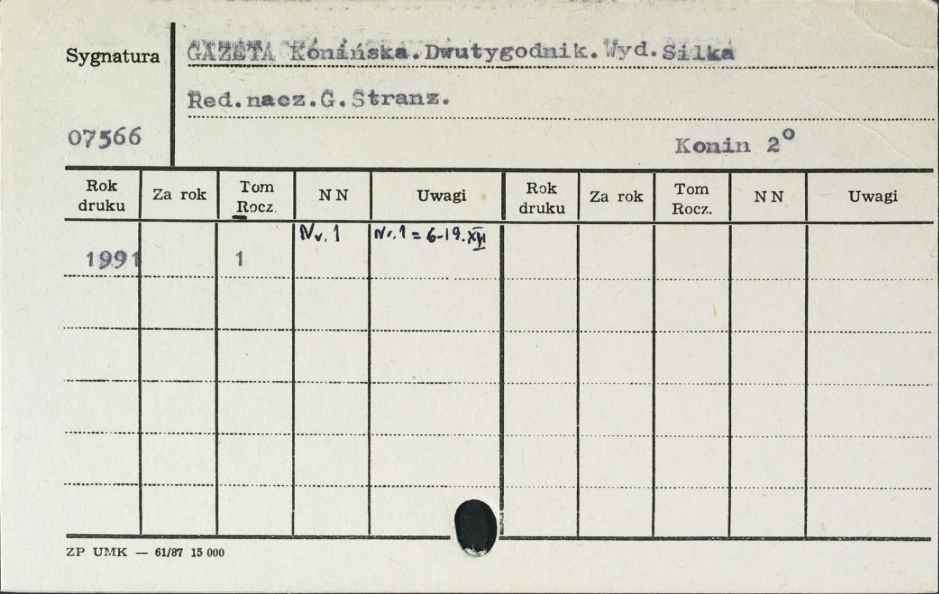 Sygnatura GAZETA Konińska.Dwutygodnik.Wyd.Silka
Red.nacz.G.Stranz.
07566 Konin 2°
Rok druku Za rok Tom Rocz. N N Uwagi Rok druku Za rok Tom Rocz. N N Uwagi
1991 1 Nr. 1 Nr. 1 = 6-19.XII
ZP UMK — 61/87 15 000